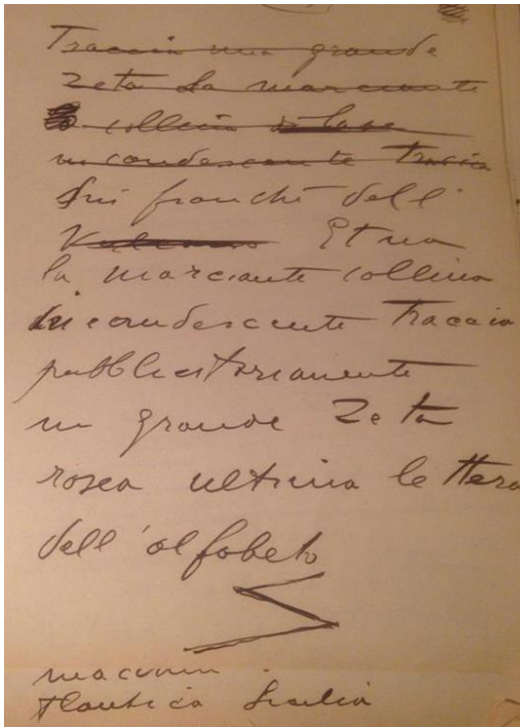 Traccia una grande
Zeta la marciante
collina di lava
incandescente traccia
Sui fianchi dell'
Vulcano Etna
la marciante collina
incandescente traccia
pubblicitariamente
un grande Zeta
rosea ultima lettera
dell'alfabeto
Sicilia